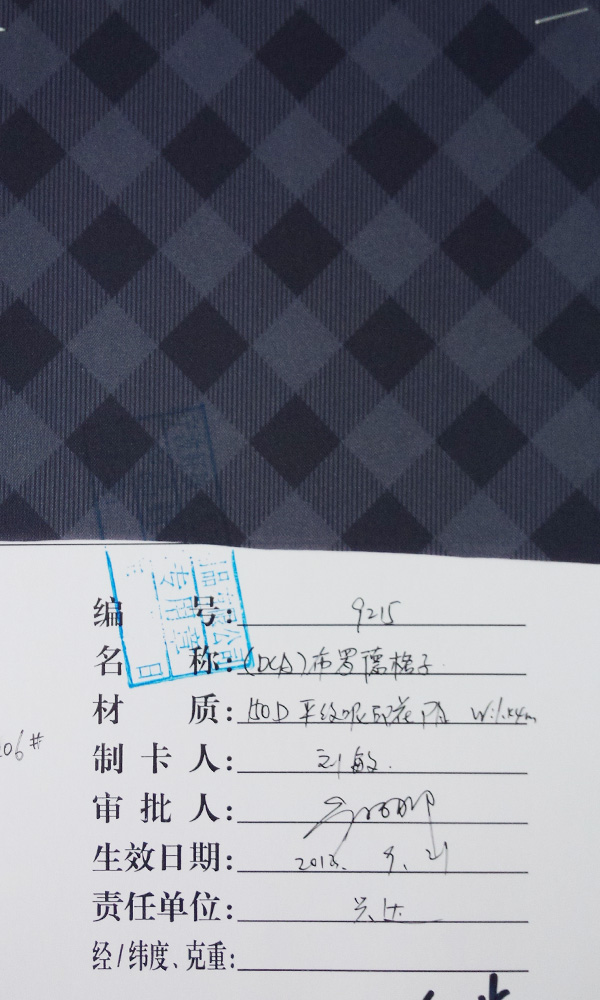 编 号: 9215
名 称: (DCA)布罗德格子
材 质: 150D 平纹呢印花 W:1.44m
06#
制 卡 人: 刘敏.
审 批 人:
生效日期: 2013. 9. 21
责任单位: 兴达
经/纬度、克重:
有限公司
专用章